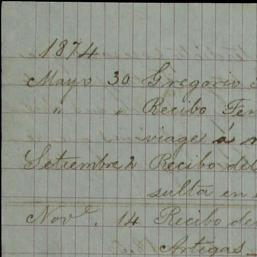 1874.
Mayo 30 Gregorio
" " Recibo Fer
viages á
Setiembre 2 Recibo del
sulta en
Nov.e 14 Recibo de
Artegas